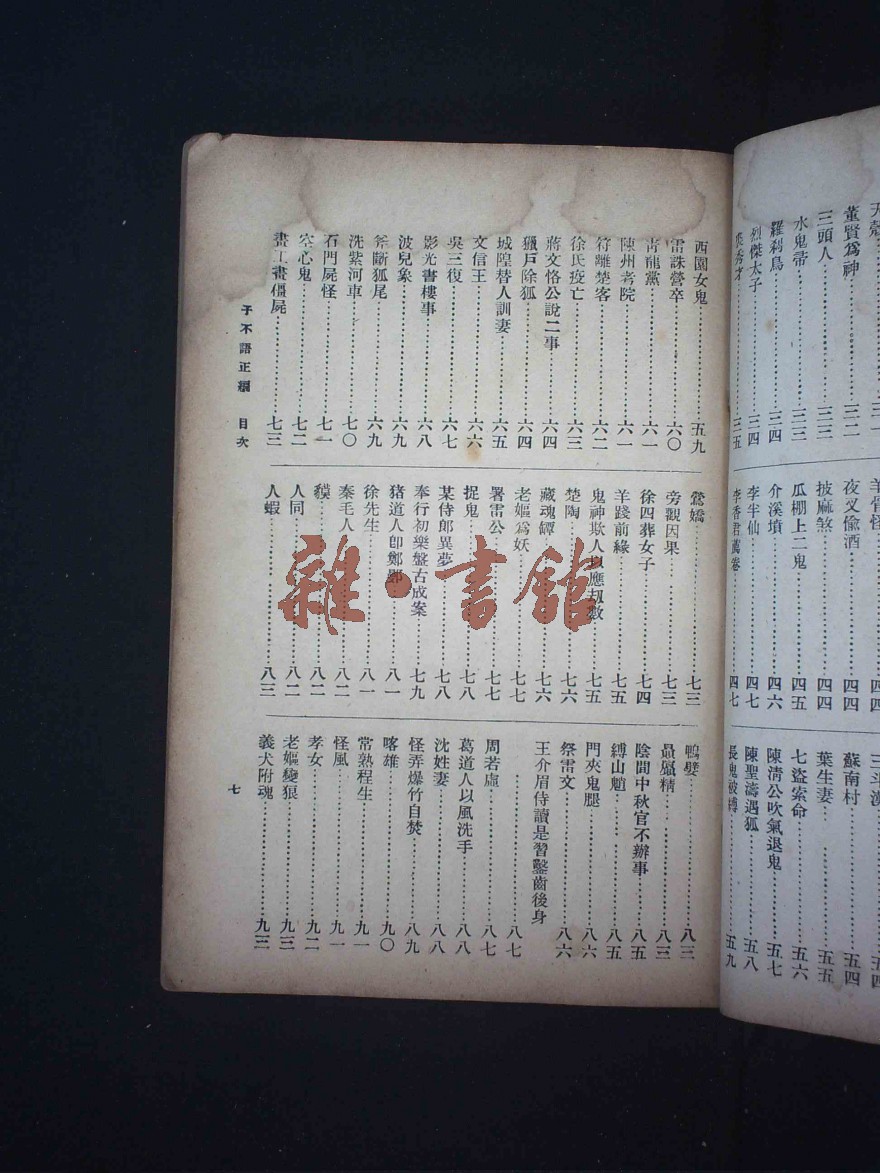 天殼……三一
董賢爲神……三二
三頭人……三三
水鬼帚……三三
羅刹鳥……三四
烈傑太子……三四
秀才……三五
羊骨怪……四四
夜叉偸酒……四四
披麻煞……四四
瓜棚上二鬼……四五
介溪墳……四六
李半仙……四七
李香君薦卷……四七
三斗漢……五四
蘇南村……五四
葉生妻……五五
七盜索命……五六
陳清公吹氣退鬼……五七
陳聖濤遇狐……五八
長鬼被縛……五九
西園女鬼……五九
雷誅營卒……六〇
靑龍黨……六一
陳州考院……六一
符離楚客……六二
徐氏疫亡……六三
蔣文恪公說二事……六四
獵戶除狐……六四
城隍替人訓妻……六五
文信王……六六
吳三復……六七
影光書樓事……六八
波兒象……六九
斧斷狐尾……六九
洗紫河車……七〇
石門屍怪……七一
空心鬼……七二
畫工畫僵屍……七三
鶯嬌……七三
旁觀因果……七三
徐四葬女子……七四
羊踐前緣……七五
鬼神欺人以應刼數……七五
楚陶……七六
藏魂罈……七六
老嫗爲妖……七七
署雷公……七七
捉鬼……七八
某侍郎異夢……七八
奉行初樂盤古成案……七九
豬道人卽鄭鄤……八一
徐先生……八一
秦毛人……八二
貘……八二
人同……八二
人蝦……八三
鴨嬖……八三
贔屭精……八三
陰間中秋官不辦事……八五
縛山魈……八五
門夾鬼腿……八六
祭雷文……八六
王介眉侍讀是習鑿齒後身
……八七
周若虛……八七
葛道人以風洗手……八八
沈姓妻……八八
怪弄爆竹自焚……八九
喀雄……九〇
常熟程生……九一
怪風……九一
孝女……九二
老嫗變狼……九三
義犬附魂……九三
子不語正編　目次
七
雜·書館